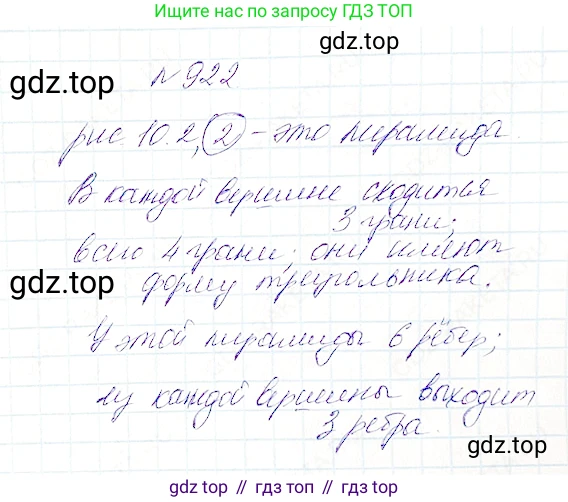 Ищите нас по запросу ГДЗ ТОП
gdz.top
№ 922
gdz.top
рис. 10.2, 2 - это пирамида.
В каждой вершине сходится
3 грани;
всего 4 грани; они имеют
gdz.top
форму треугольника.
gdz.top
У этой пирамиды 6 рёбер;
из каждой вершины выходит
3 ребра.
gdz.top // gdz.top // gdz.top